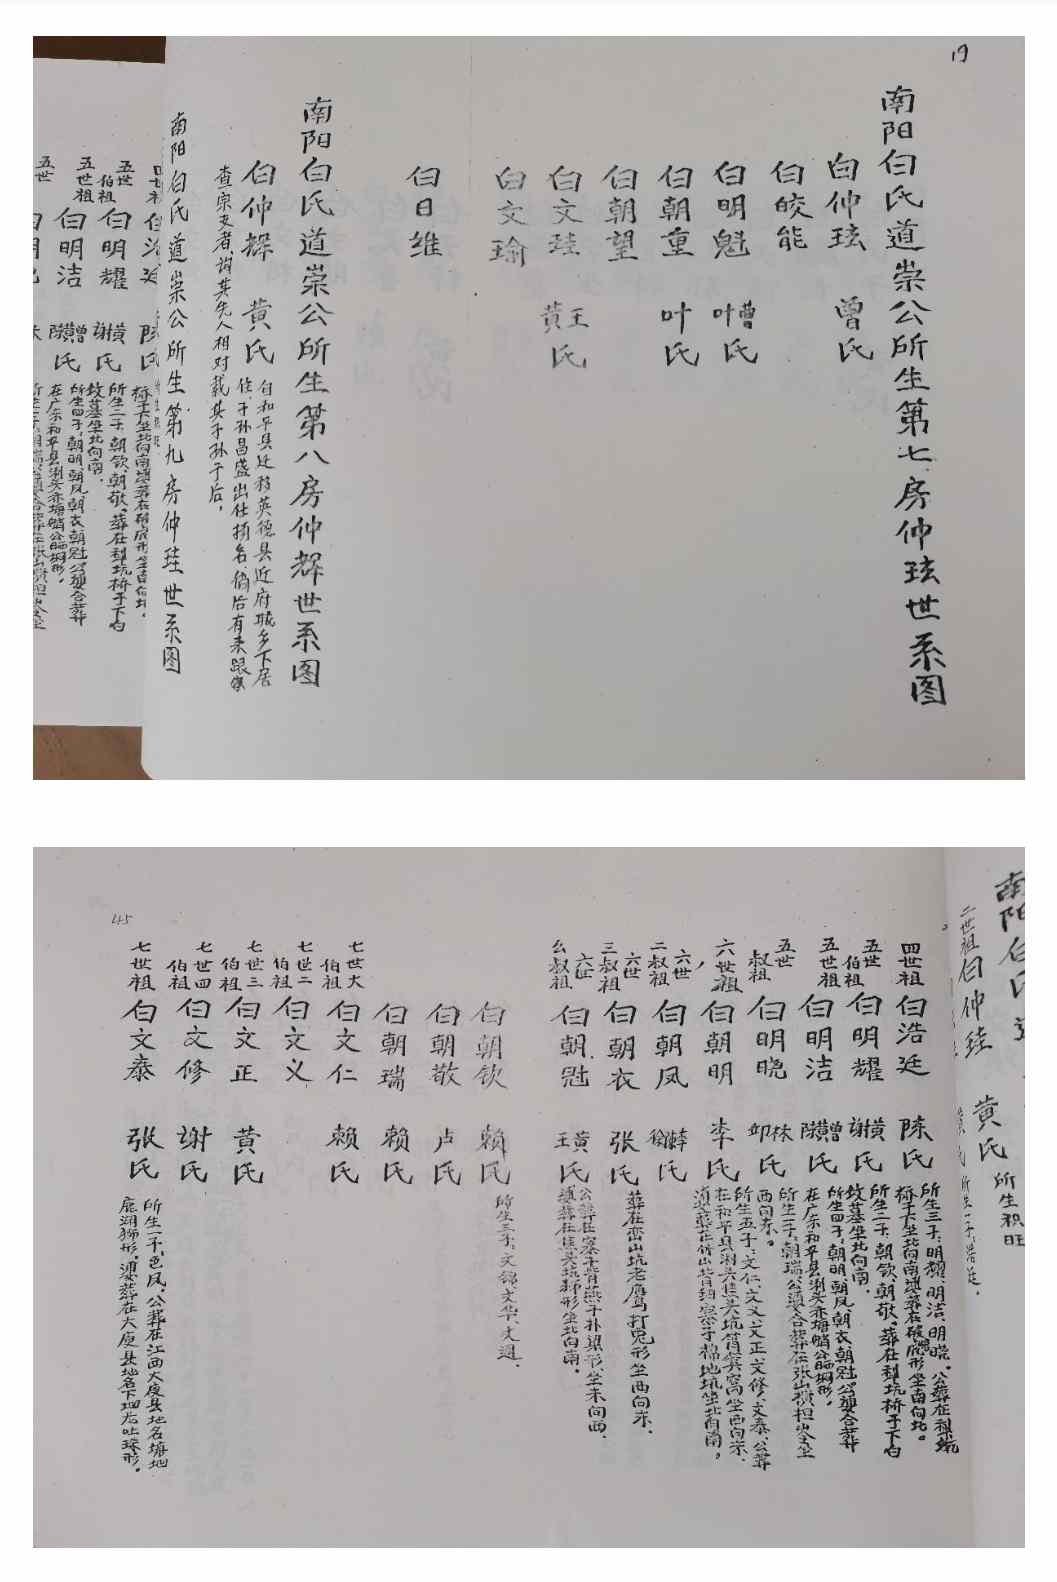 19
南阳白氏道崇公所生第七房仲玹世系图
白仲玹 曾氏
白皎能
白明魁 曾叶氏
白朝重 叶氏
白朝望
白文珪 王黄氏
白文瑜
白日维
南阳白氏道崇公所生第八房仲辉世系图
白仲辉 黄氏
自和平县迁移英德县近府城乡下居
住,子孙昌盛出仕扬名倘后有来跟祭
查宗支者,询其先人相对载其子孙于后,
南阳白氏道崇公所生第九房仲珪世系图
五世伯祖 白明耀 横谢氏
五世祖 白明洁 曾陈氏
五世
南阳白氏道
二世祖 白仲珪 黄氏 所生积旺
氏所生一子,浩廷,
四世祖 白浩廷 陈氏
所生三子:明耀、明洁、明晓。公葬在梨坑
桥子下坐北向南,婆葬在破虎形坐南向北。
五世伯祖 白明耀 横谢氏
所生二子,朝钦、朝敬、葬在梨坑桥子下白
坟墓坐北向南。
五世祖 白明洁 曾陈氏
所生四子,朝明、朝凤、朝衣、朝冠。公婆合葬
在广东和平县浰头赤塘
五世叔祖 白明晓 林邱氏
所生一子,朝瑞公婆合葬在张山横担山坐
西向东。
六世祖 白朝明 李氏
所生五子:文仁、文义、文正、文修、文泰、公葬
在和平县浰头焦头坑背窝坐西向东、
六世二叔祖 白朝凤
六世三叔祖 白朝衣 张氏
葬在峦山坑老鹰打兔形坐西向东、
六世么叔祖 白朝冠 黄王氏
公葬在寨子背燕子扑梁形、坐东向西、
婆葬在焦头坑狮形坐北向南。
白朝钦 赖氏
所生三子、文锦、文华、文通、
白朝敬 卢氏
白朝瑞 赖氏
七世大伯祖 白文仁 赖氏
七世二伯祖 白文义
七世三伯祖 白文正 黄氏
七世四伯祖 白文修 谢氏
七世祖 白文泰 张氏
所生一子,色凤,公葬在江西大庾县地名塘地
鹿湖狮形,婆葬在大庾县地名下坳右吐珠形。
45